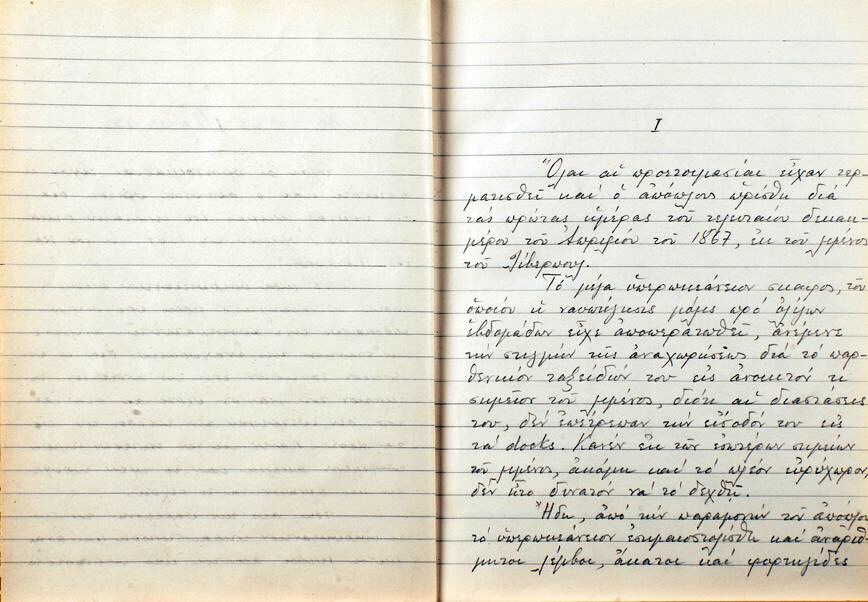 I
Ὅλαι αἱ προετοιμασίαι εἶχαν τερ-
ματισθεῖ καί ὁ ἀπόπλους ὡρίσθη διά
τάς πρώτας ἡμέρας τοῦ τελευταίου δεκαη-
μέρου τοῦ Ἀπριλίου τοῦ 1867, ἐκ τοῦ λιμένος
τοῦ Λίβερπουλ.
Τό μέγα ὑπερωκεάνειον σκάφος, τοῦ
ὁποίου ἡ ναυπήγησις μόλις πρό ὀλίγων
ἑβδομάδων εἶχε ἀποπερατωθεῖ, ἀνέμενε
τήν στιγμήν τῆς ἀναχωρήσεως διά τό παρ-
θενικόν ταξείδιόν του εἰς ἀνοικτόν τι
σημεῖον τοῦ λιμένος, διότι αἱ διαστάσεις
του, δέν ἐπέτρεπαν τήν εἴσοδόν του εἰς
τά docks. Κανέν ἐκ τῶν ἐσωτέρων σημείων
τοῦ λιμένος, ἀκόμη καί τό πλέον εὐρύχωρον,
δέν ἦτο δυνατόν νά τό δεχθῆ.
Ἤδη, ἀπό τήν παραμονήν τοῦ ἀπόπλου
τό ὑπερωκεάνειον ἐσημαιοστολίσθη καί ἀναρίθ-
μητοι λέμβοι, ἄκατοι καί φορτηγίδες